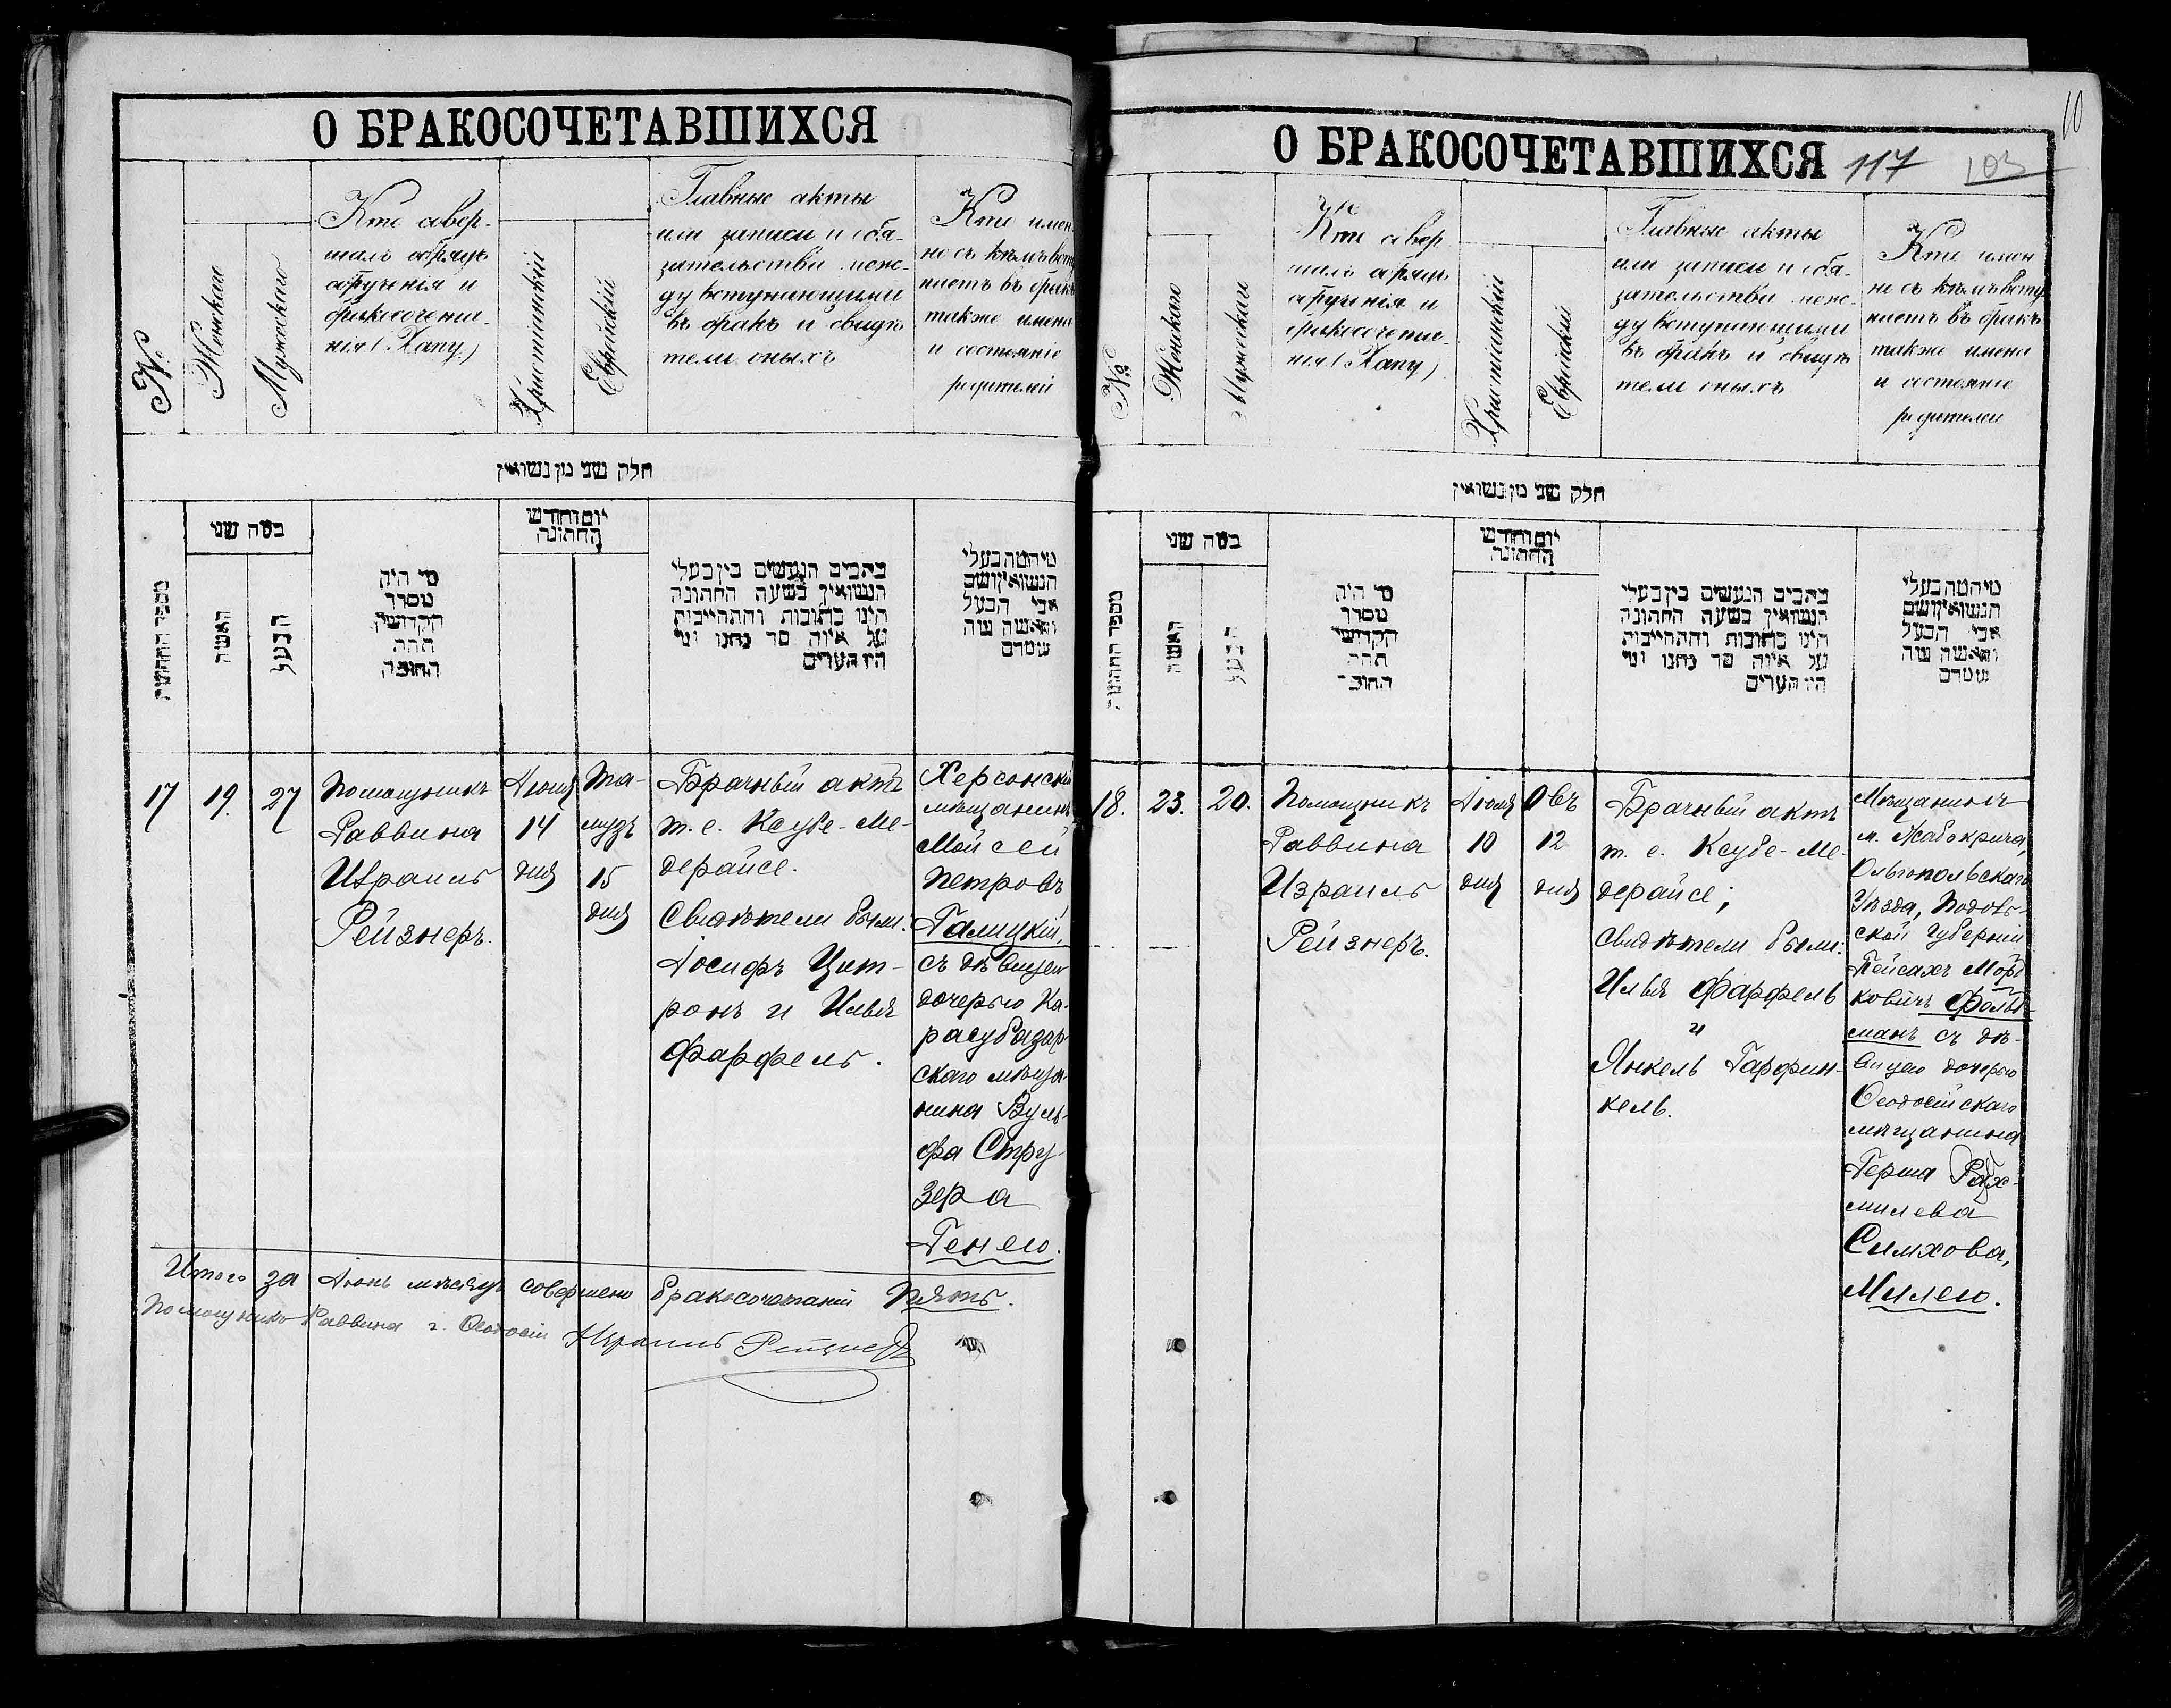 О БРАКОСОЧЕТАВШИХСЯ
№
Женскаго
Мужескаго
Кто совер-
шалъ обрядъ
обрученія и
бракосочета-
нія (Хапу)
Христіанскій
Еврейскій
Главные акты
или записи и обя-
зательства меж-
ду вступающими
въ бракъ и свидѣ
тели оныхъ
Кто имен
но съ кѣмъ всту
паетъ въ бракъ
также имена
и состояніе
родителей
חלק שני מן נשואין
מספר החתונות
בטה שני
האשה
הבעל
מי היה
מסדר
הקדושין
תחת
החופה
יום וחודש
החתונה
כתבים הנעשים בין בעלי
הנשואין בשעת החתונה
היינו כתובות והתחייבות
על איזה סך נתנו ומי
היו העדים
מיהמה בעלי
הנשואין ושם
אבי הבעל
והאשה ומה
עמדם
17
19.
27
Помощникъ
Раввина
Израиль
Рейзнеръ.
Іюня
14
дня
Та-
музъ
15
дня
Брачный актъ
т. е. Ксубе-Ме-
дерайсе.
Свидѣтели были:
Іосифъ Цит-
ронъ и Илья
Фарфель.
Херсонскій
мѣщанинъ
Мойсей
Петровъ
Галицкій,
съ дѣвицею
дочерью Ка-
расубазар-
скаго мѣща-
нина Вуль-
фа Стру-
зера
Генею.
Итого за Іюнь мѣсяцъ совершено бракосочетаній Пять.
Помощникъ Раввина г. Ѳеодосіи Израиль Рейзнеръ
О БРАКОСОЧЕТАВШИХСЯ 117 103
10
№
Женскаго
Мужескаго
Кто совер
шалъ обрядъ
обрученія и
бракосочета-
нія (Хапу)
Христіанскій
Еврейскій
Главные акты
или записи и обя-
зательства меж-
ду вступающими
въ бракъ и свидѣ
тели оныхъ
Кто имен
но съ кѣмъ всту
паетъ въ бракъ
также имена
и состояніе
родителей
חלק שני מן נשואין
מספר החתונות
בטה שני
האשה
הבעל
מי היה
מסדר
הקדושי
תחת
החופ
יום וחודש
החתונה
כתבים הנעשים בין בעלי
הנשואין בשעת החתונה
היינו כתובות והתחייבות
על איזה סך נתנו ומי
היו העדים
מיהמה בעלי
הנשואין ושם
אבי הבעל
והאשה ומה
עמדם
18.
23.
20.
Помощникъ
Раввина
Израиль
Рейзнеръ.
Іюля
10
дня
Овъ
12
дня
Брачный актъ
т. е. Ксубе-Ме-
дерайсе;
Свидѣтели были:
Илья Фарфель
и
Янкель Гарфин-
кель.
Мѣщанинъ
м. Жабокрича,
Ольгопольскаго
Уѣзда, Подоль-
ской Губерніи
Пейсахъ Морд
ковичъ Фельд-
манъ съ дѣ-
вицею дочерью
Ѳеодосійскаго
мѣщанина
Герша Рах-
милева
Симхова,
Милею.